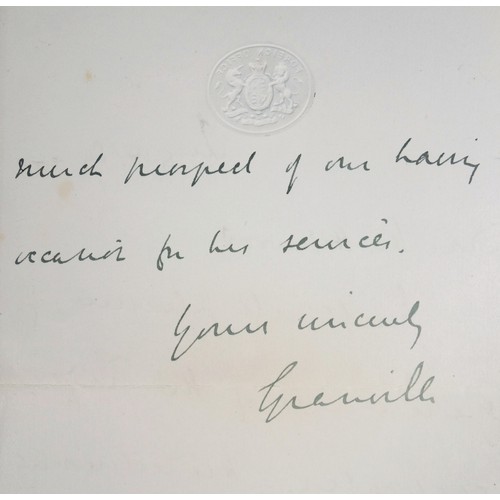 much prospect of our having
occasion for his services.
Yours sincerely
Granville